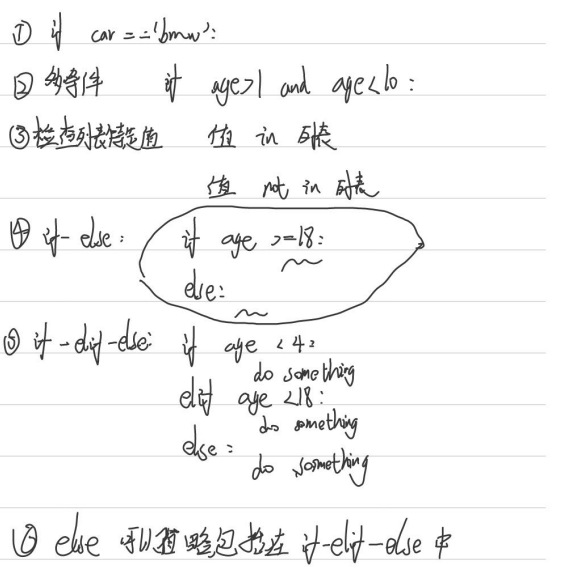 ① if car == 'bmw':
② 多条件 if age>1 and age<10:
③ 检查列表特定值 值 in 列表
值 not in 列表
④ if-else: if age >=18:
else:
⑤ if-elif-else: if age <4:
do something
elif age <18:
do something
else:
do something
⑥ else 可以省略包括在 if-elif-else 中